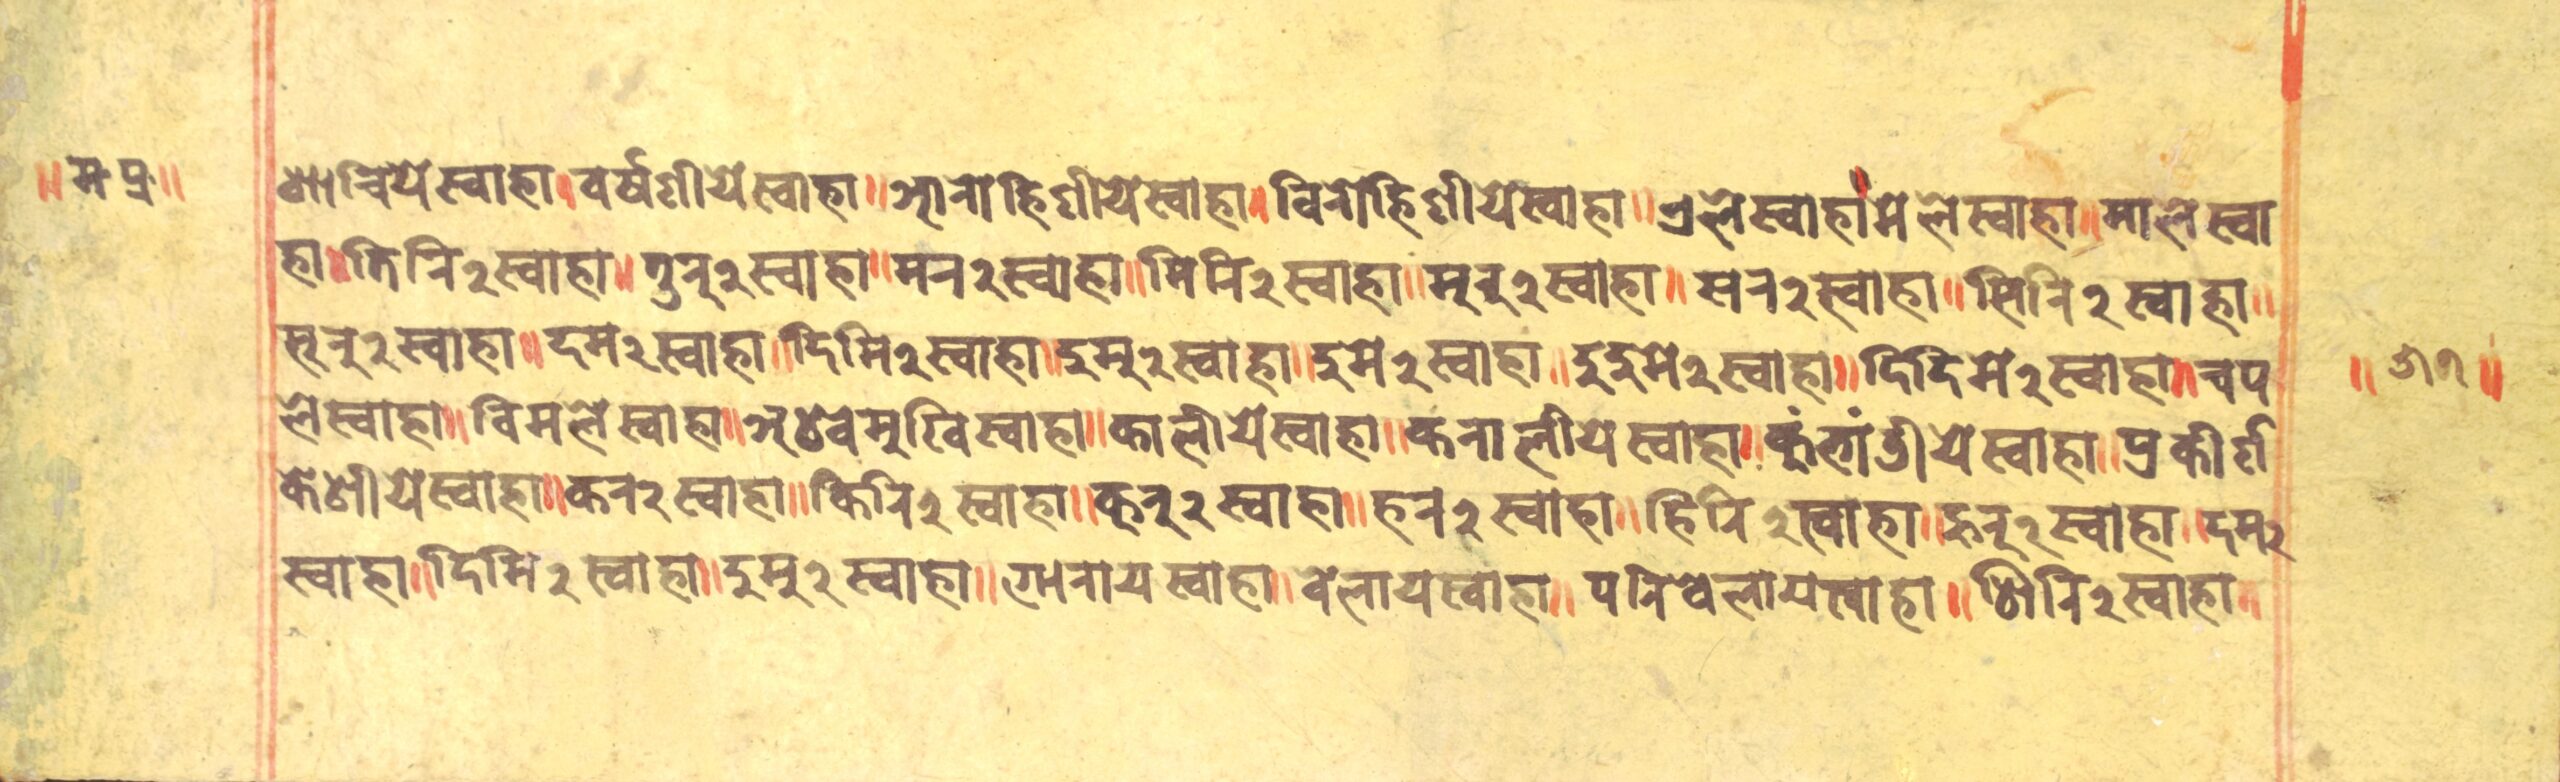 ॥ म प्र ॥
शाचिये स्वाहा ॥ वर्षणीये स्वाहा ॥ आरोहिणीये स्वाहा ॥ विरोहिणीये स्वाहा ॥ एले स्वाहा ॥ मेले स्वाहा ॥ माले स्वा
हा ॥ तिरि २ स्वाहा ॥ तुरु २ स्वाहा ॥ मर २ स्वाहा ॥ मिरि २ स्वाहा ॥ मुरु २ स्वाहा ॥ सर २ स्वाहा ॥ सिरि २ स्वाहा ॥
सुरु २ स्वाहा ॥ दम २ स्वाहा ॥ दिमि २ स्वाहा ॥ दुमु २ स्वाहा ॥ दुमे २ स्वाहा ॥ दुदुमे २ स्वाहा ॥ दिदिमे २ स्वाहा ॥ चप
॥ ७१ ॥
ले स्वाहा ॥ विमले स्वाहा ॥ स्वाहा ॥ कालीये स्वाहा ॥ करालीये स्वाहा ॥ कुंभांडीये स्वाहा ॥ प्रकीर्ण
केशीये स्वाहा ॥ कर २ स्वाहा ॥ किरि २ स्वाहा ॥ कुरु २ स्वाहा ॥ हर २ स्वाहा ॥ हिरि २ स्वाहा ॥ हुरु २ स्वाहा ॥ दम २
स्वाहा ॥ दिमि २ स्वाहा ॥ दुमु २ स्वाहा ॥ गोराय स्वाहा ॥ वेलाय स्वाहा ॥ परिवेलाय स्वाहा ॥ शिरि २ स्वाहा ॥